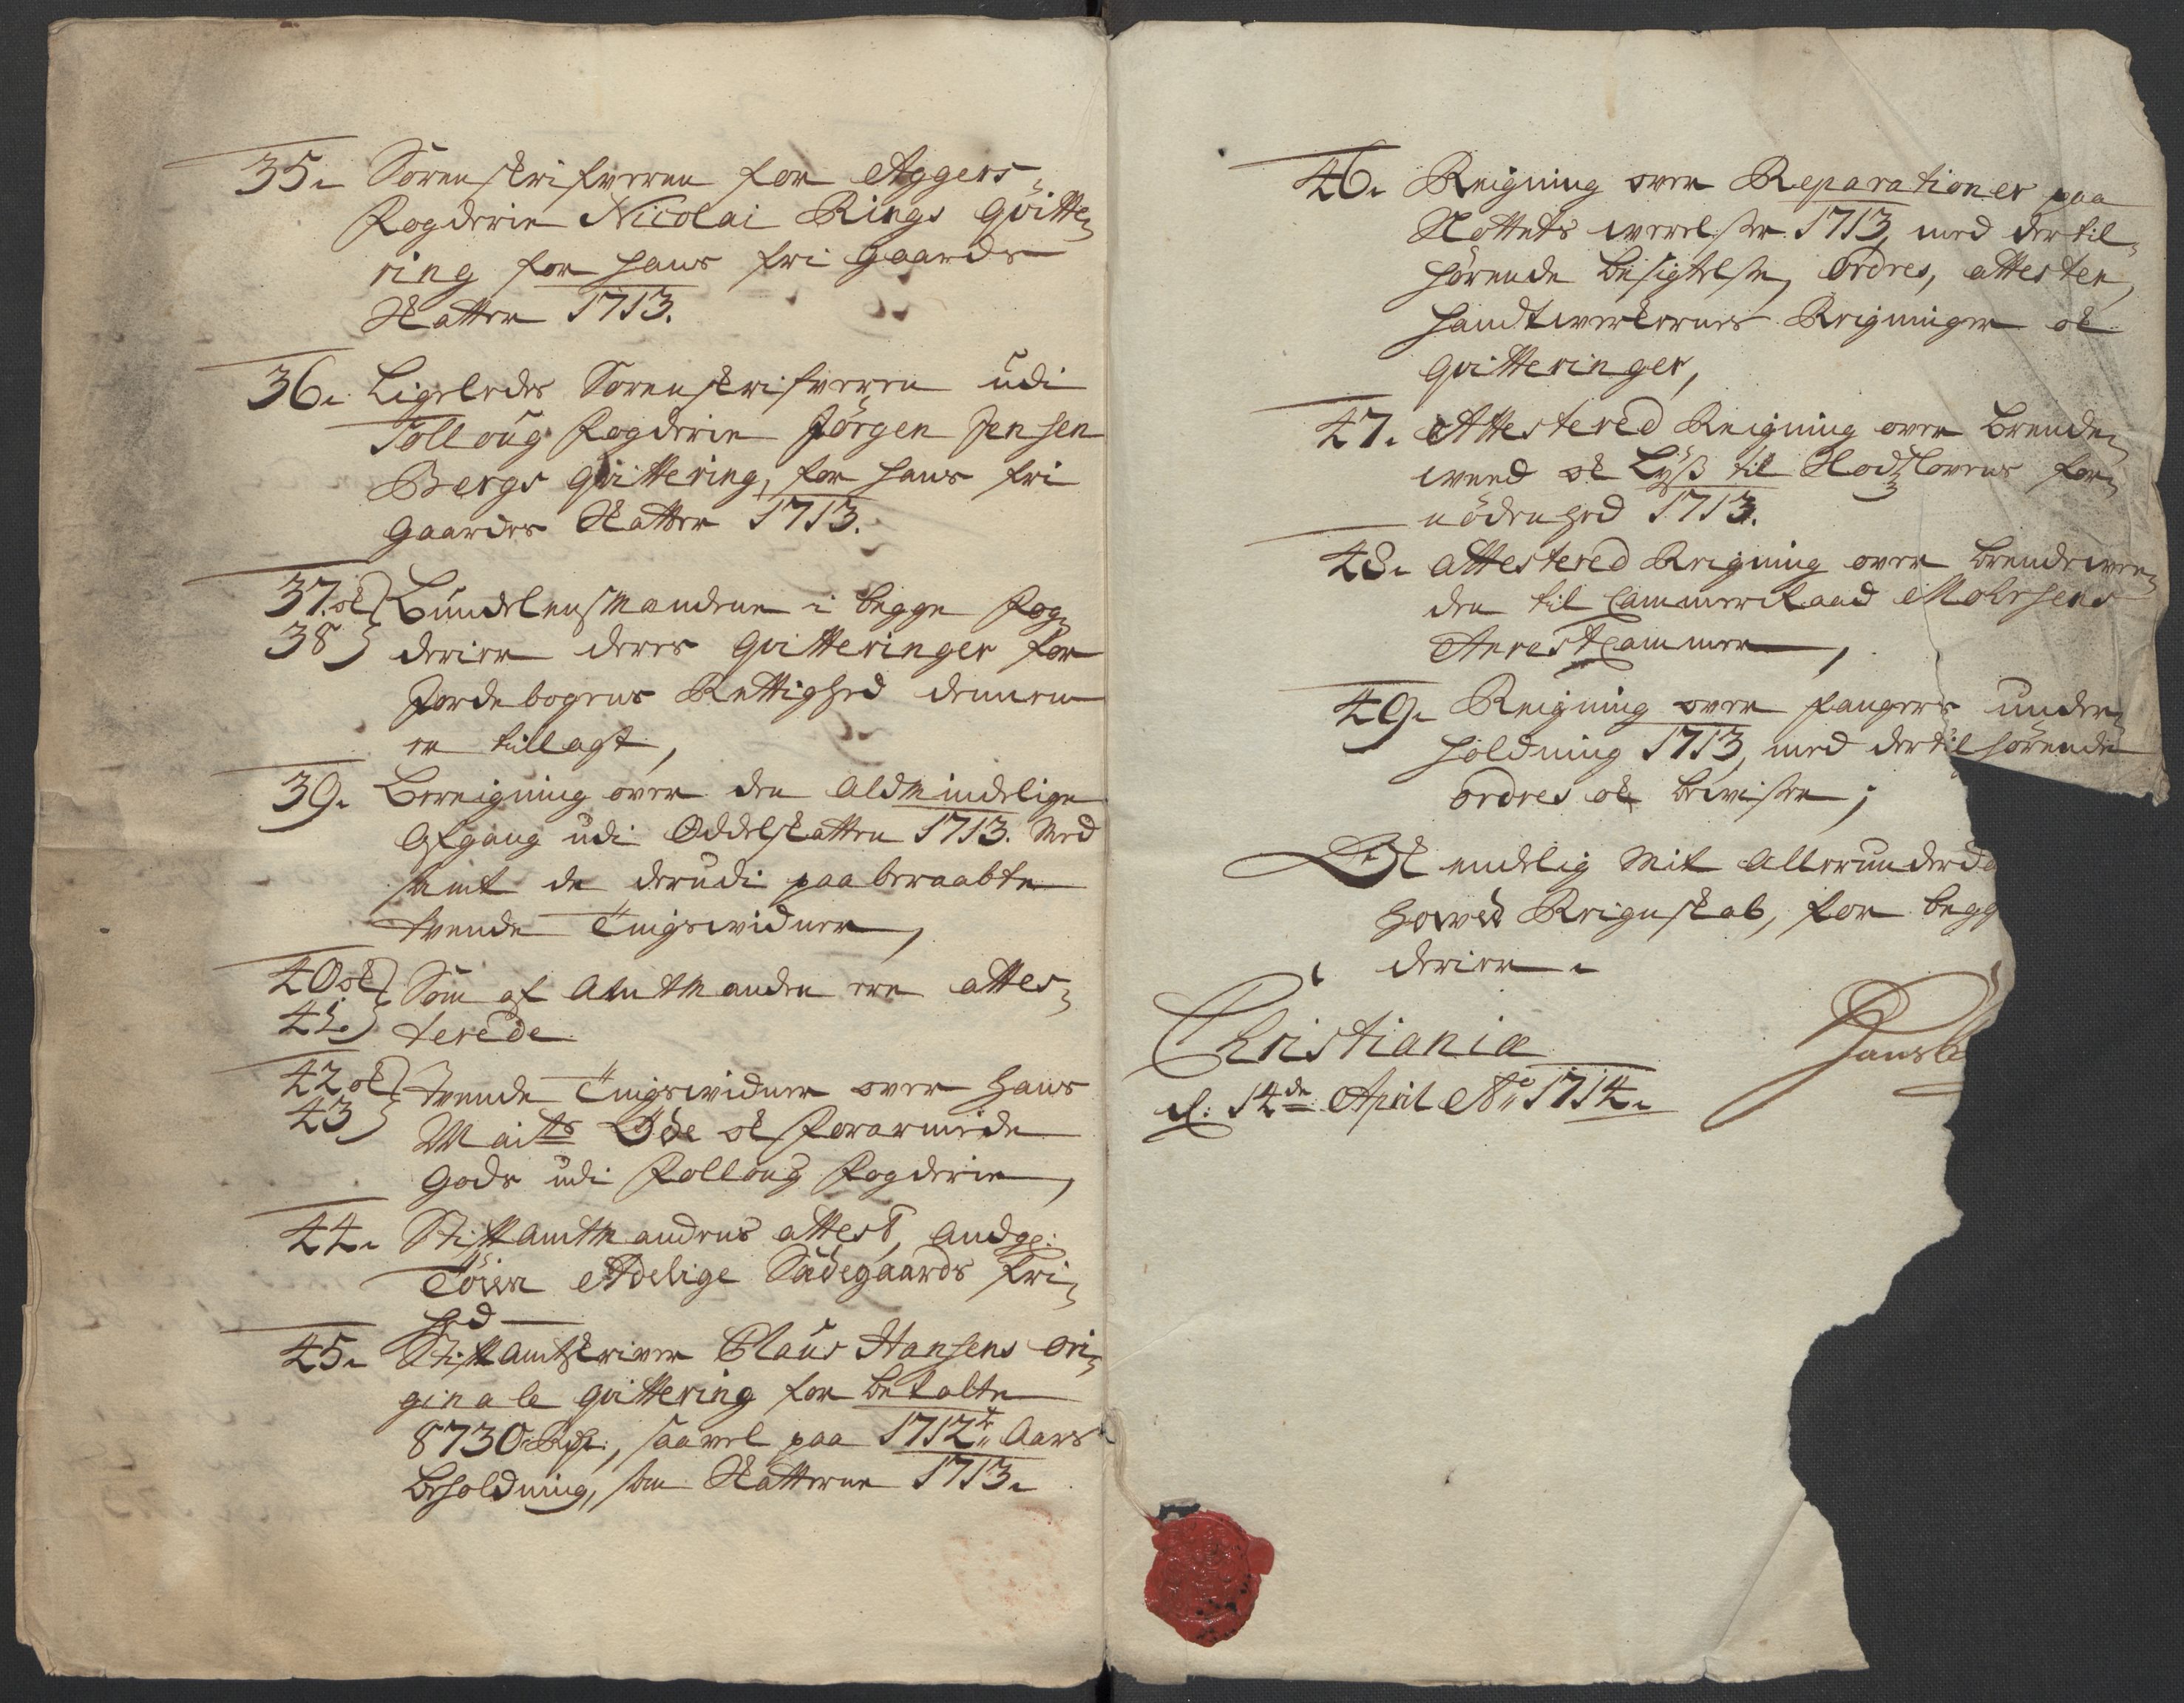 35. Sorenskrifveren for Aggers
Fogderie Nicolai Rings Qvitte
ring for hans fri Gaards
Skatter 1713.
36. Ligeledes Sorenskrifveren udi
Folloug Fogderie Jörgen Jensen
Bergs Qvittering, for hans fri
Gaardes Skatter 1713.
37. ok Bundelensmandene i begge Fog
38 derier deres Qvitteringer for
Jordebogens Rettighed dennem
er tillagt,
39. Bereigning over den Aldmindelige
Afgang udi Oddelskatten 1713. Med
samt de derudi paaberaabte
tvende Tingsvidner,
40 ok Som af Amtmanden ere attes
41. terede
42 ok tvende Tingsvidner over Hans
43 Maits Öde ok forarmede
Gods udi Folloug Fogderie,
44. Stiftamtmandens attest, andg:
Töien Adelige Sædegaards fri
hed
45. Stiftamtskriver Claus Hansens ori
ginale Qvittering for betalte
8730 Rdr:, saavel paa 1712te Aars
Besoldning, som Skatterne 1713.
46. Reigning over Reparationer paa
Slottets verelser 1713, med der til
hörende besigtelse, Ordres, attester,
Handtverkernes Reigninger ok
Qvitteringer,
47. Attestered Reigning over Brende
veed ok Lyss til Slodslovens for
nödenhed 1713.
48. Attestered Reigning over Brendevee
den til Cammerraad Mohrsens
Arrest Cammer,
49. Reigning over fangers under
holdning 1713, med der til hörende
ordres ok beviser;
Ok endelig Mit Allerunderda
Hoved Reignskab, for begg
derier.
Christiania
d: 14de April Ao 1714.
Hans